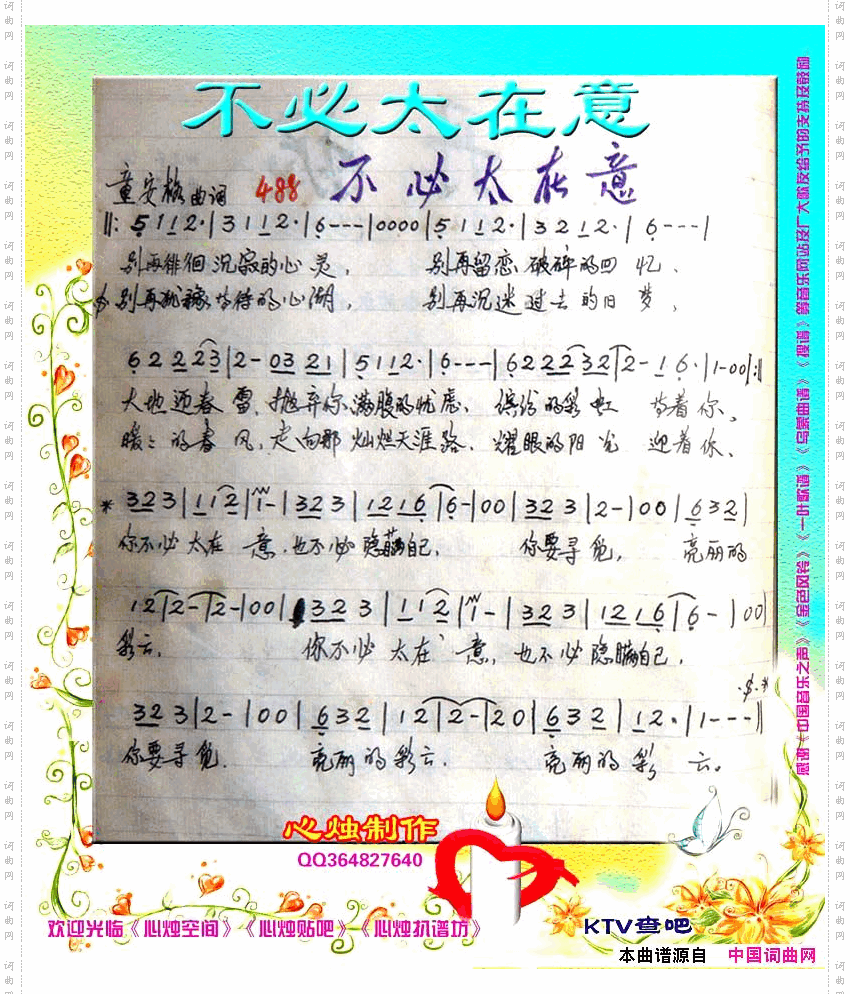 不必太在意
童安格曲词 488 不必太在意
‖: 5 1 1 2· | 3 1 1 2· | 6 - - - | 0 0 0 0 | 5 1 1 2· | 3 2 1 2· | 6 - - - |
别再徘徊沉寂的心灵， 别再留恋破碎的回忆、
别再 等待的心湖， 别再沉迷过去的旧梦，
6 2 2 2 2 3 | 2 - 0 3 2 1 | 5 1 1 2· | 6 - - - | 6 2 2 2 3 2 | 2 - 1 6· | 1 - 0 0 :‖
大地迎春雷、抛弃你满腹的忧虑、缤纷的彩虹 等着你、
暖暖的春风，走向那灿烂天涯路、耀眼的阳光 迎着你、
* 3 2 3 | 1 1 2 | 1 - | 3 2 3 | 1 2 1 6 | 6 - | 0 0 | 3 2 3 | 2 - | 0 0 | 6 3 2 |
你不必太在意，也不必隐瞒自己， 你要寻觅， 亮丽的
1 2 | 2 - | 2 - | 0 0 | 3 2 3 | 1 1 2 | 1 - | 3 2 3 | 1 2 1 6 | 6 - | 0 0 |
彩云， 你不必太在意，也不必隐瞒自己，
3 2 3 | 2 - | 0 0 | 6 3 2 | 1 2 | 2 - | 2 0 | 6 3 2 | 1 2· | 1 - - - ‖
你要寻觅. 亮丽的彩云. 亮丽的彩云。
心烛制作
QQ364827640
欢迎光临《心烛空间》《心烛贴吧》《心烛扒谱坊》
KTV查吧
本曲谱源自 中国词曲网
感谢《中国音乐之声》《金色风铃》《一叶歌谱》《乌蒙曲谱》《搜谱》等音乐网站及广大歌友给予的支持及鼓励
词曲网